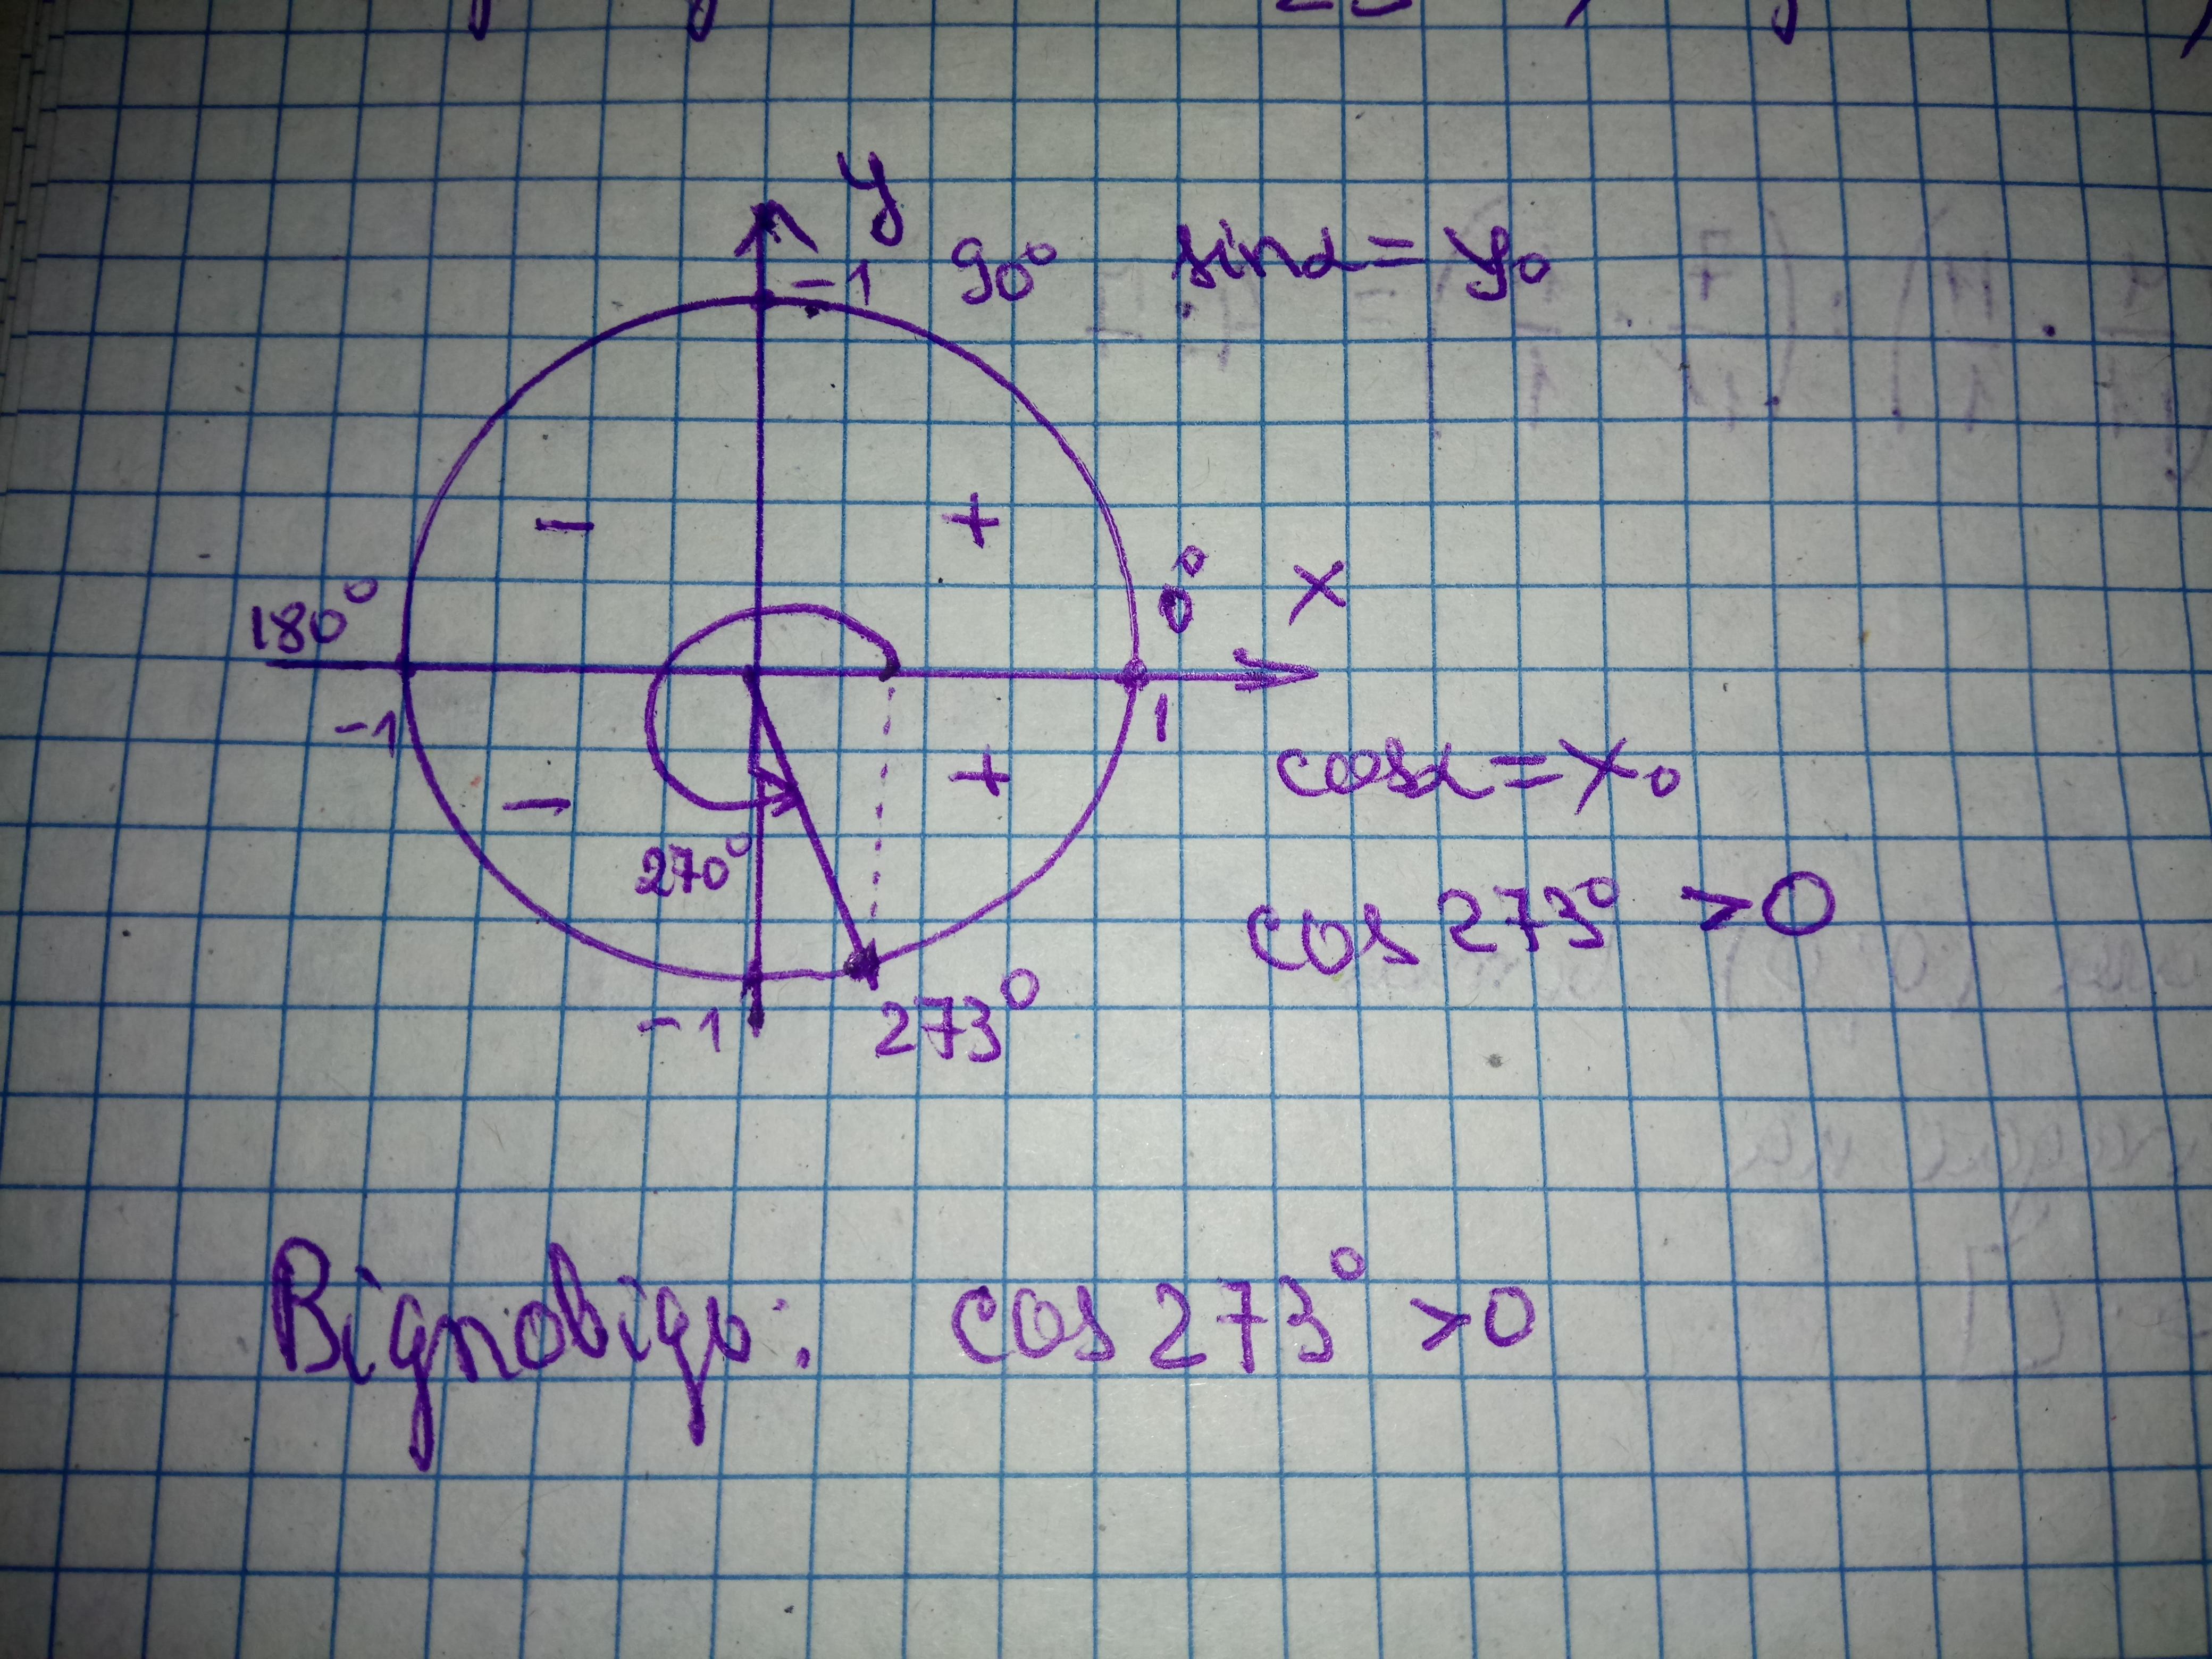 y
-1 90° sinα = y₀
- +
180° 0° x
-1 1
- + cosα = x₀
270° cos 273° > 0
-1 273°
Відповідь: cos 273° > 0